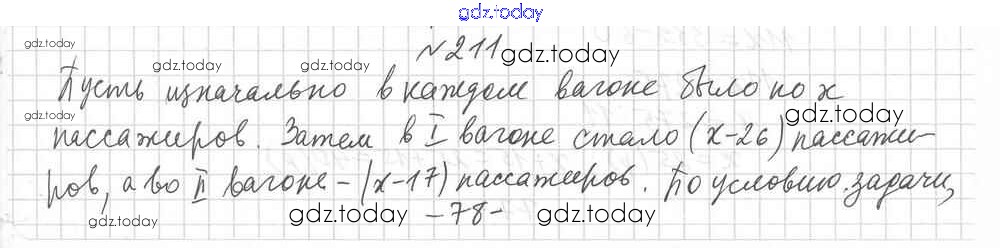 gdz.today
№211 gdz.today
gdz.today gdz.today gdz.today
Пусть изначально в каждом вагоне было по x
gdz.today gdz.today
пассажиров. Затем в I вагоне стало (x-26) пассажи-
ров, а во II вагоне - (x-17) пассажиров. По условию задачи,
gdz.today gdz.today -78- gdz.today